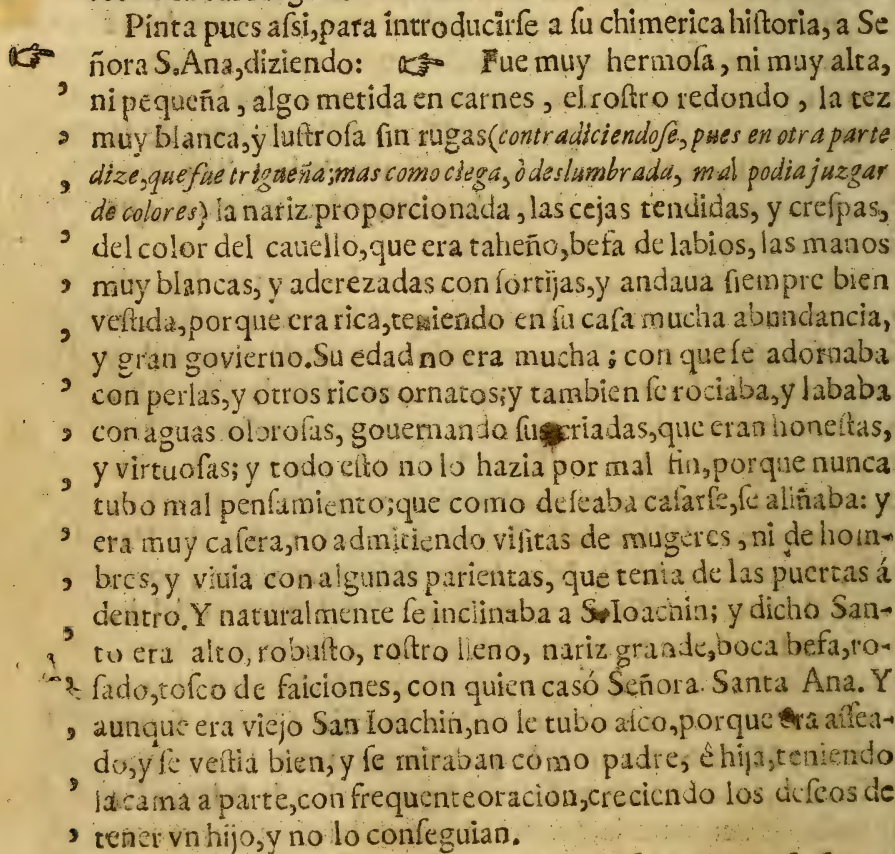 Pinta pues aſsi,para introducirſe a ſu chimerica hiſtoria, a Se
ñora S.Ana,diziendo: ☞ Fue muy hermoſa, ni muy alta,
ni pequeña, algo metida en carnes, el roſtro redondo, la tez
muy blanca,y luſtroſa ſin rugas(contradiciendoſe,pues en otra parte
dize,que fue trigueña;mas como ciega,ò deslumbrada, mal podia juzgar
de colores) la nariz proporcionada, las cejas tendidas, y creſpas,
del color del cauello,que era taheño,beſa de labios, las manos
muy blancas, y aderezadas con ſortijas,y andaua ſiempre bien
veſtida,porque era rica,teniendo en ſu caſa mucha abundancia,
y gran govierno.Su edad no era mucha; con que ſe adornaba
con perlas,y otros ricos ornatos;y tambien ſe rociaba,y lababa
con aguas oloroſas, gouernando ſus criadas,que eran honeſtas,
y virtuoſas; y todo eſto no lo hazia por mal fin,porque nunca
tubo mal penſamiento;que como deſeaba caſarſe,ſe aliñaba: y
era muy caſera,no admitiendo viſitas de mugeres, ni de hom-
bres, y viuia con algunas parientas, que tenia de las puertas á
dentro.Y naturalmente ſe inclinaba a S.Ioachin; y dicho San-
to era alto, robuſto, roſtro lleno, nariz grande,boca beſa,ro-
ſado,toſco de faiciones, con quien casó Señora. Santa Ana. Y
aunque era viejo San Ioachin,no le tubo aſco,porque era aſſea-
do,y ſe veſtia bien, y ſe miraban como padre, è hija,teniendo
la cama a parte,con frequente oracion,creciendo los deſeos de
tener vn hijo,y no lo conſeguian.